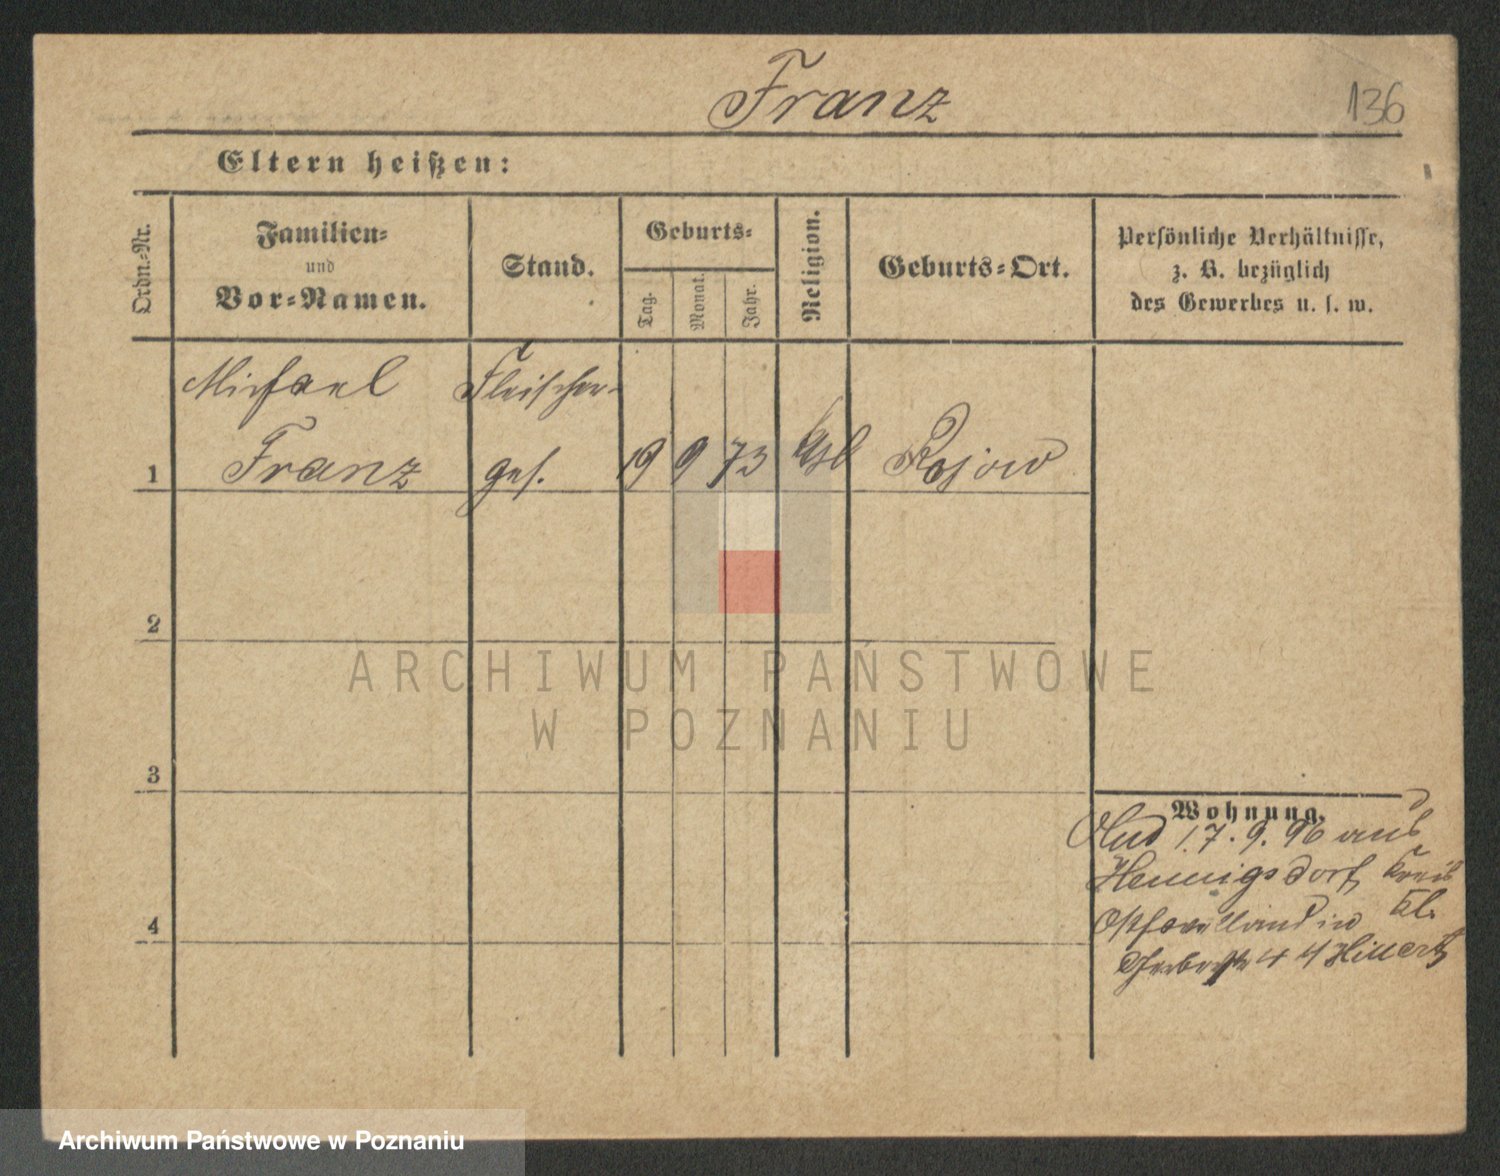 Franz
136
Eltern heißen:
Ordn.-Nr.
Familien-
und
Vor-Namen.
Stand.
Geburts-
Tag.
Monat.
Jahr.
Religion.
Geburts-Ort.
Persönliche Verhältnisse,
z. B. bezüglich
des Gewerbes u. s. w.
Michael
Fleischer-
1
Franz
ges.
19
9
73
Rojow
2
ARCHIWUM PAŃSTWOWE
W POZNANIU
3
Wohnung.
17. 9. 96 aus
Hennigsdorf Kreis
Osthavelland in Kl.
4
44 Hillert
Archiwum Państwowe w Poznaniu